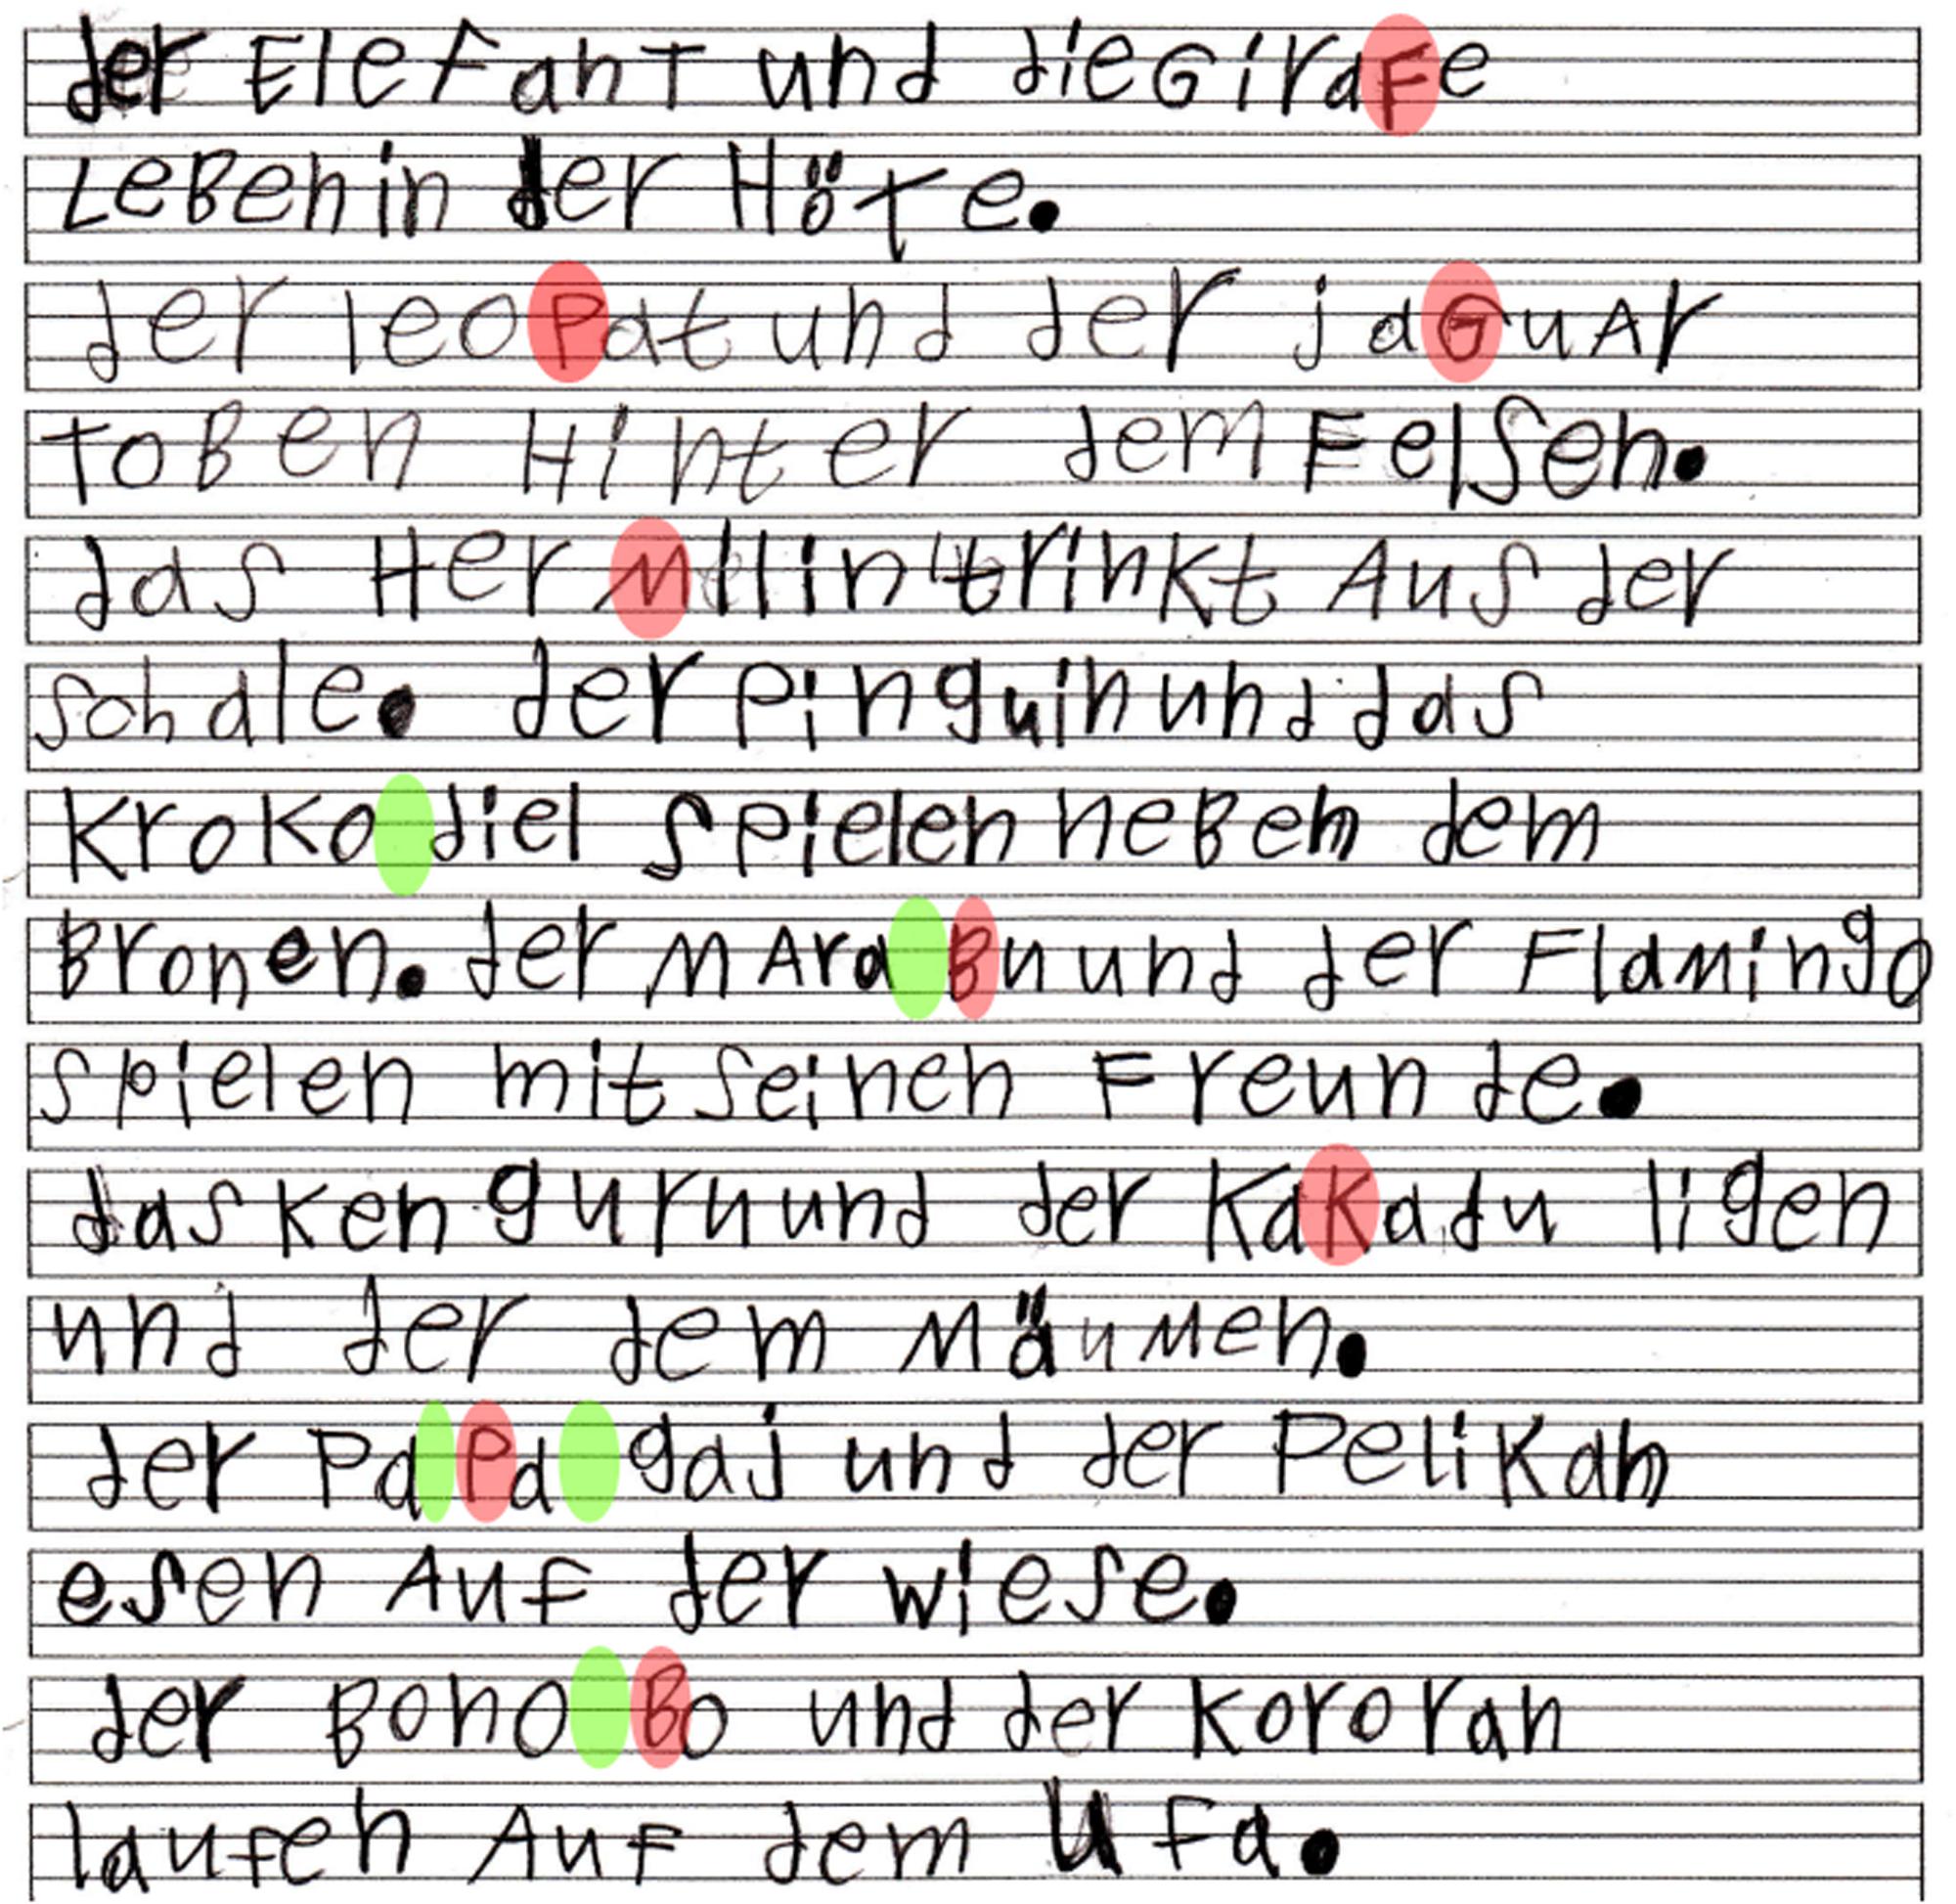 der ElefanT und dieGiraFe
LeBenin der Höfe.
der leoPat und der jaGuAr
ToBen Hinter dem Felsen.
das HerMilin trinkt Aus der
schale. der pinguinunddas
kroko diel spielen neBen dem
Bronen. der MAra Bu und der Flamingo
spielen mit seinen Freunde.
das kenguruund der KaKadu ligen
und der dem Mäumen.
der PaPa gai und der PeliKan
esen AuF der wiese.
der Bono Bo und der kororan
laufen AuF dem Ufa.